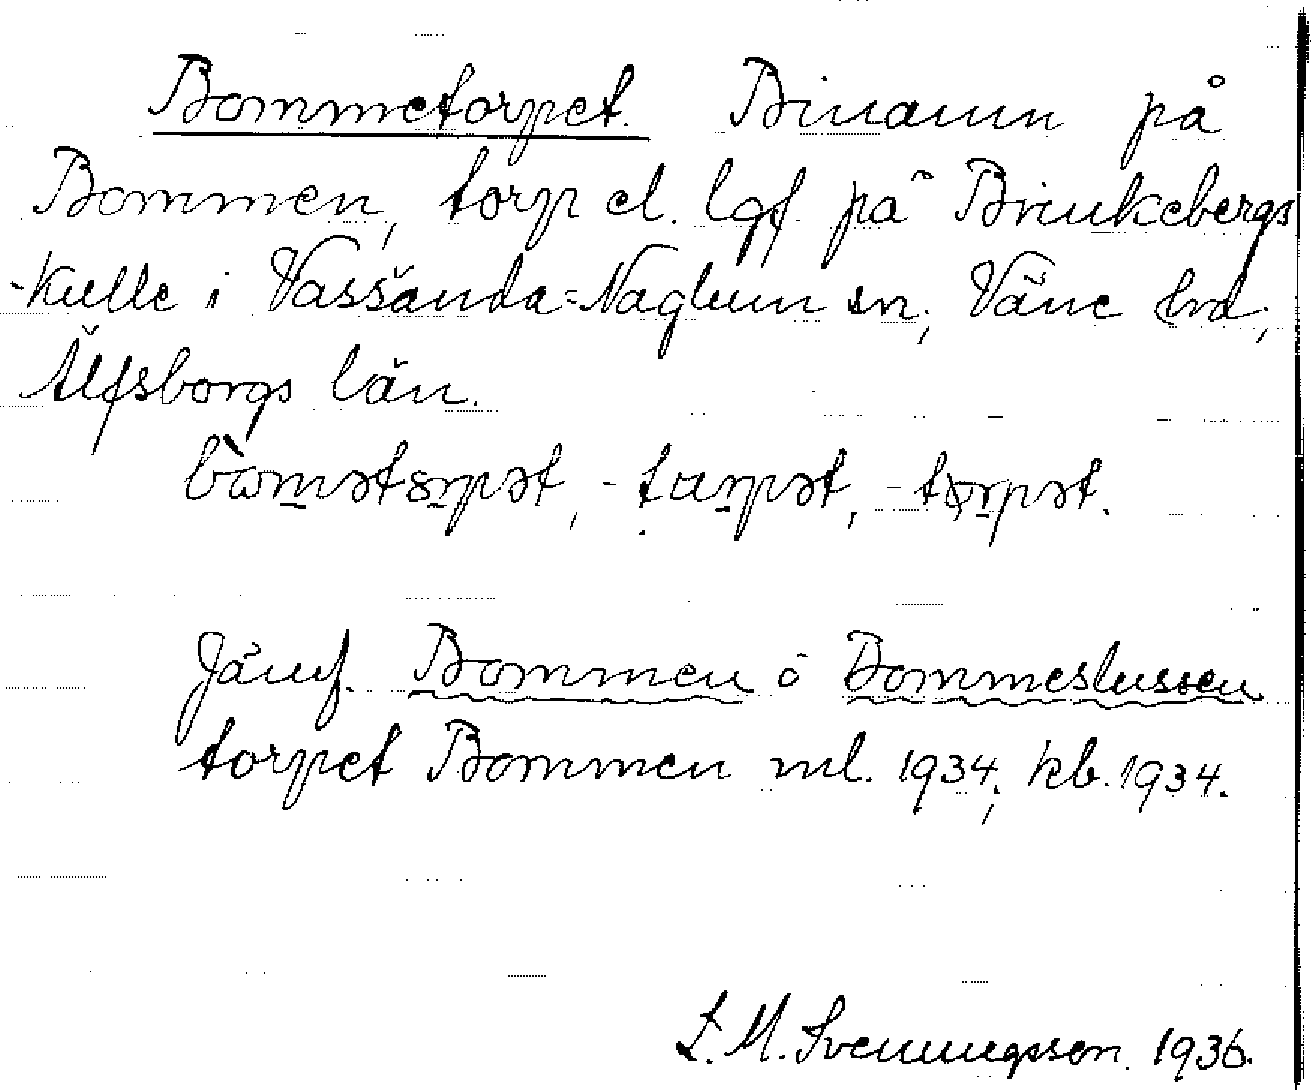 Bommetorpet. Binamn på
Bommen, torp el. lgf. på Brinkebergs
-kulle i Vassända=Naglum sn, Väne hd,
Älfsborgs län.
bòmətɔrpət, -tarpət, -tɔrpət.
Jämf. Bommen o Bommeslussen
torpet Bommen ml. 1934, kb. 1934.
L. M. Svenungsson. 1936.